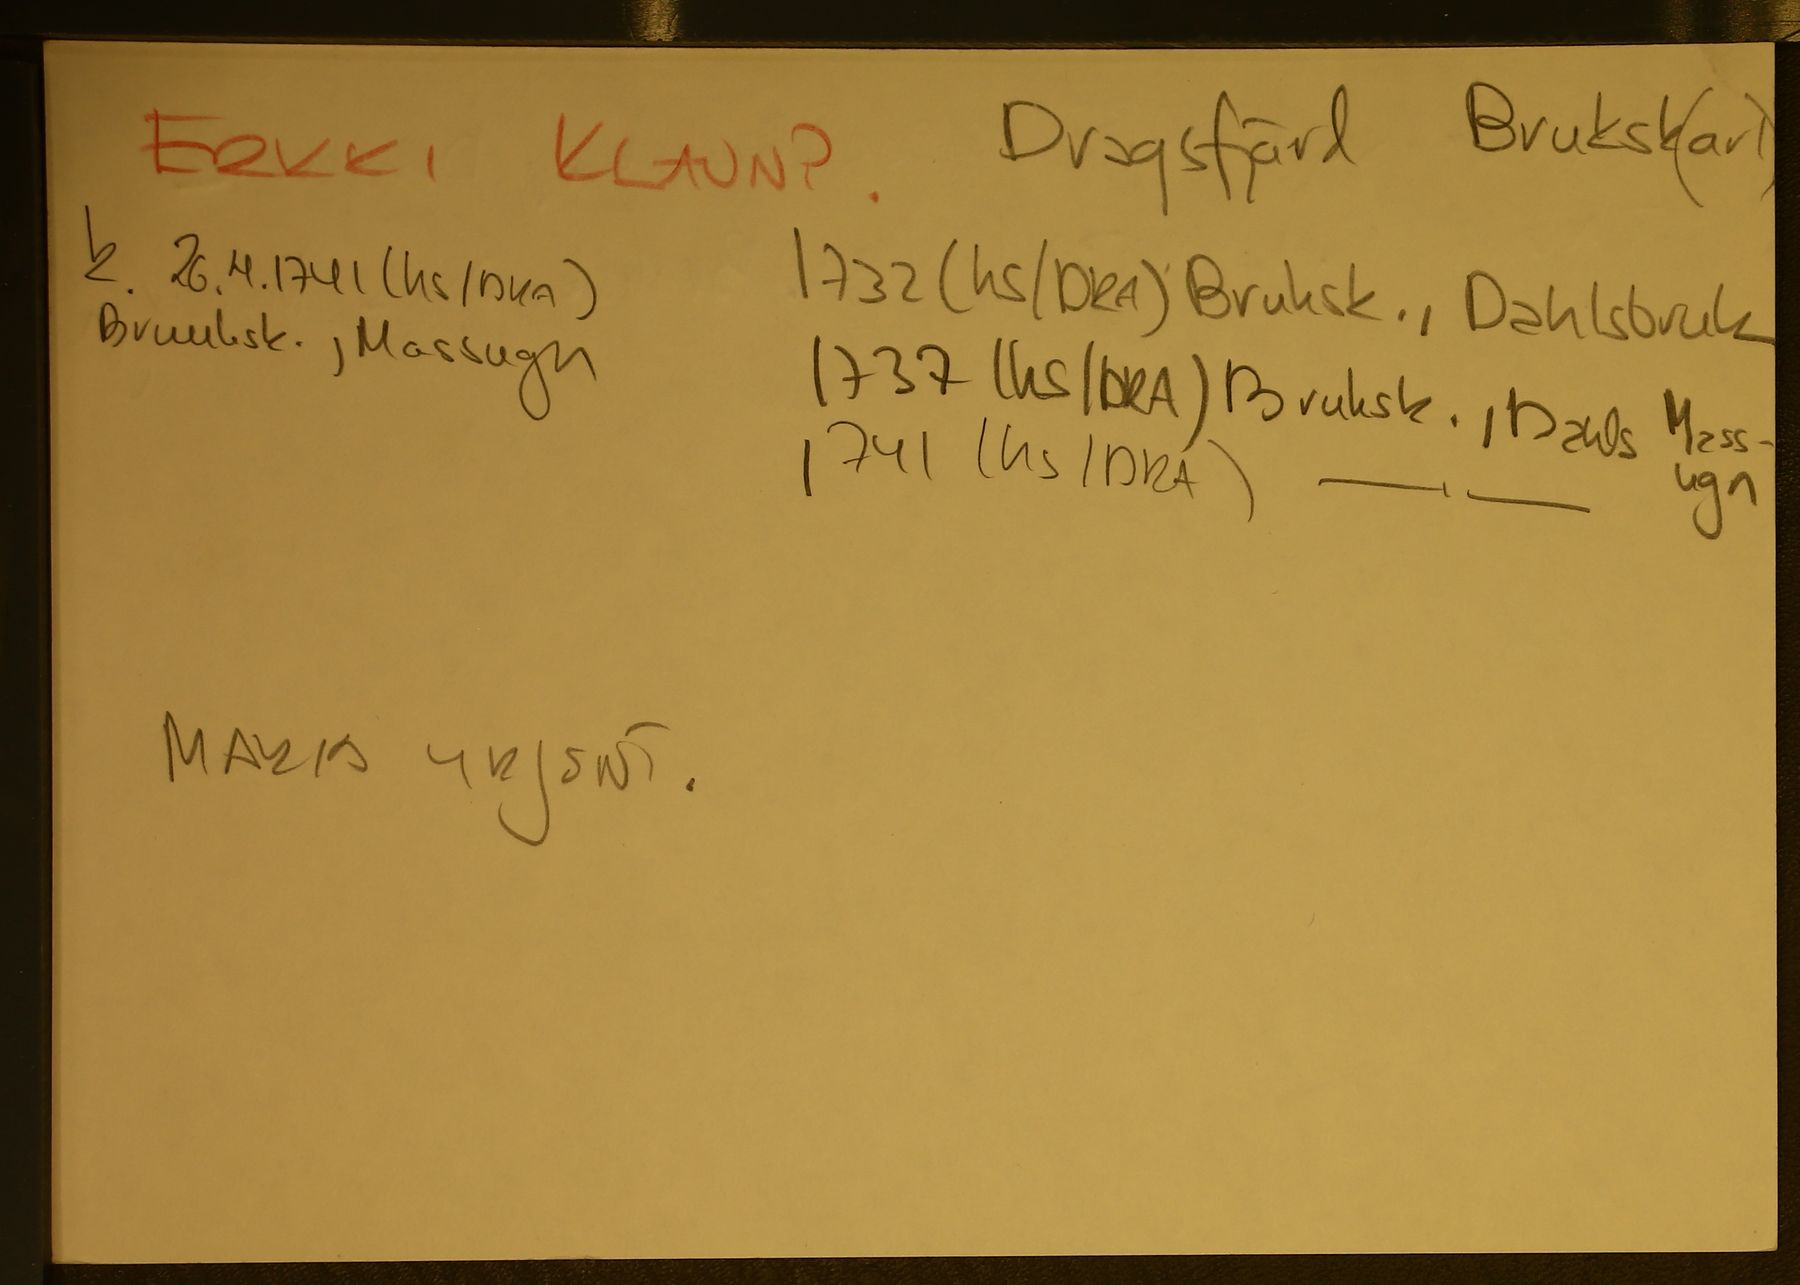 ERKKI KLAUN?. Dragsfjärd Bruksk(arl)
k. 26.4.1741 (hs/DRA)
Bruuksk., Massugn
1732 (hs/DRA) Bruksk., Dahlsbruk
1737 (hs/DRA) Bruksk., Dahls Mass-
ugn
1741 (hs/DRA) —,,—
MARIA YRJÖNT.